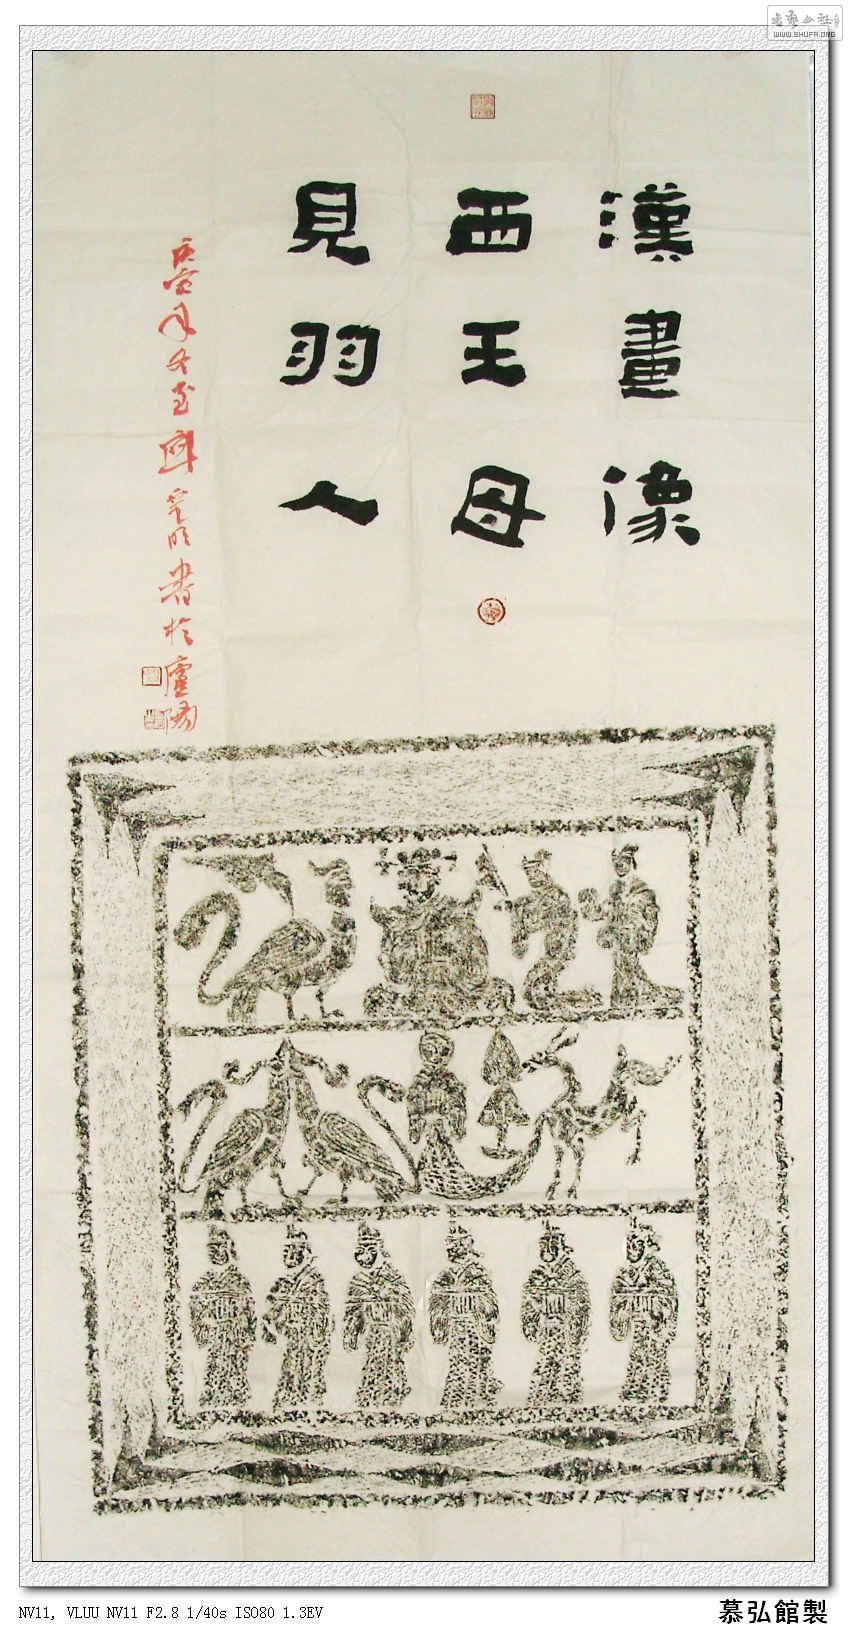 書藝公社
WWW.SHUFA.ORG
漢畫像
西王母
見羽人
庚寅年冬至
書於廬陽
NV11, VLUU NV11 F2.8 1/40s ISO80 1.3EV
慕弘館製